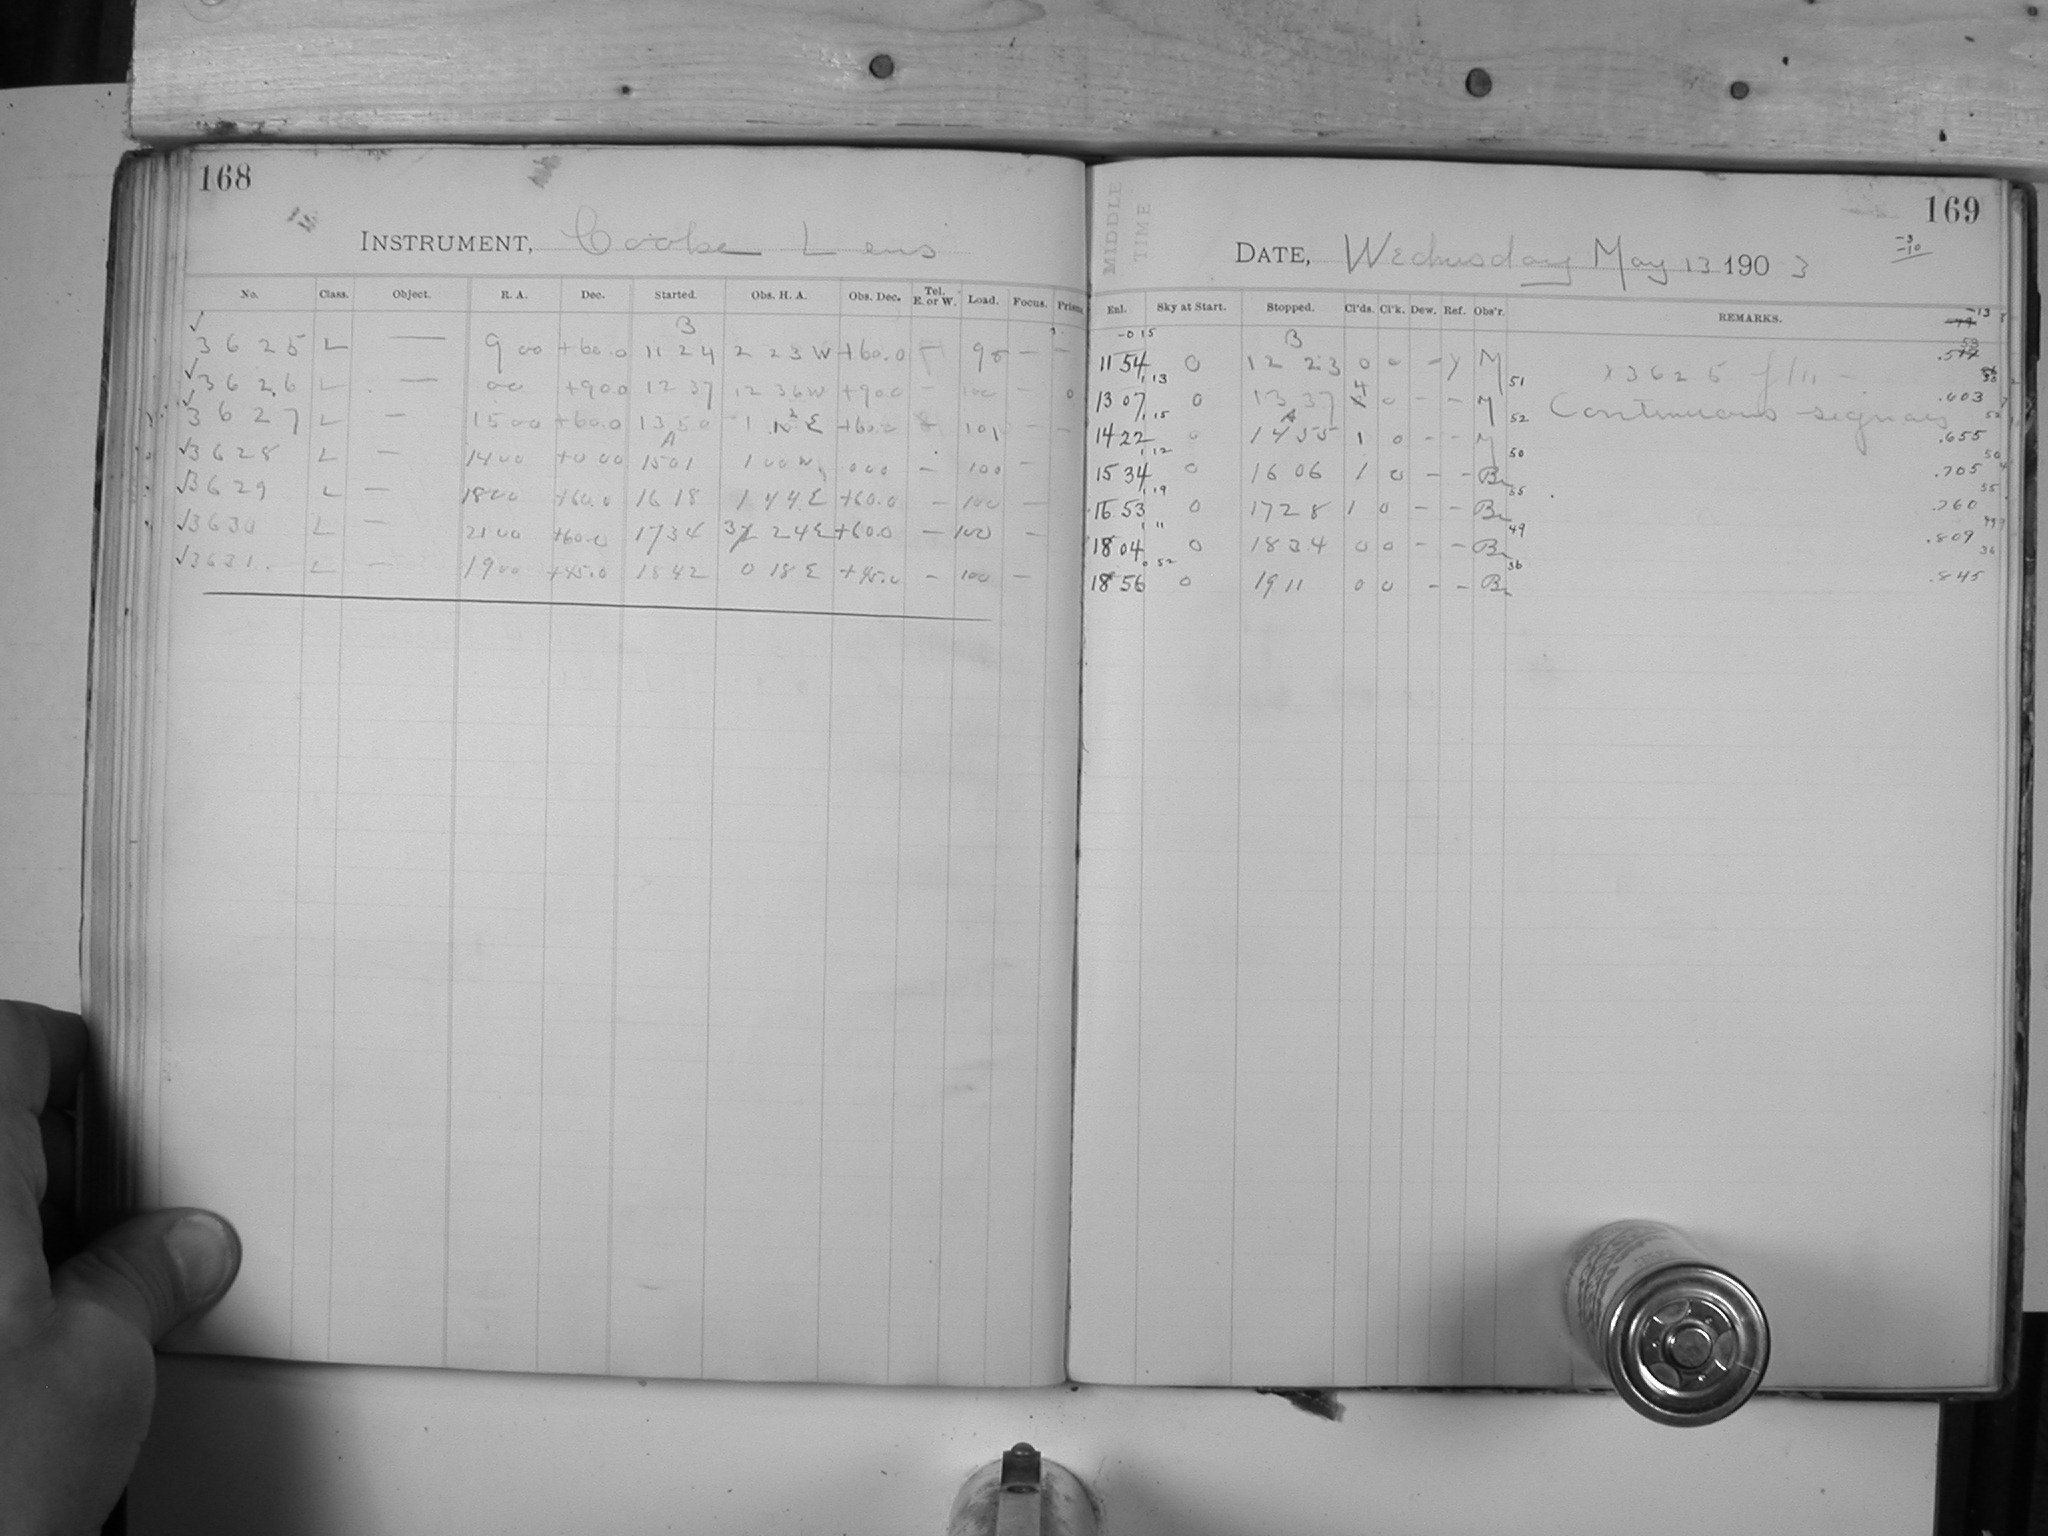 168
INSTRUMENT, Cooke Lens
No. Class. Object. R. A. Dec. Started. Obs. H. A. Obs. Dec. Tel. E. or W. Load. Focus. Prism
B
3625 L — 9 00 +60.0 11 24 2 23 W +60.0 — 98 — —
3626 L — 00 +90.0 12 37 12 36 W +90.0 — 100 — 0
3627 L — 15 00 +60.0 13 50 +60.0 101 — —
A
3628 L — 14 00 +0 00 15 01 1 00 W 000 — 100 —
3629 L — 18 00 +60.0 16 18 1 44 E +60.0 — 100 —
3630 L — 21 00 +60.0 17 34 24 E +60.0 — 100 —
3631. L — 19 00 +45.0 18 42 0 18 E +45.0 — 100 —
MIDDLE TIME
169
DATE, Wednesday May 13 1903
-3
-10
Enl. Sky at Start. Stopped. Cl'ds. Cl'k. Dew. Ref. Obs'r. REMARKS.
-13
-0 15 B
11 54 0 12 23 0 0 — y M x3625 f/11 —
1 13 51
13 07 0 13 37 4 0 — — M Continuous signals .603
1 15 A 52
14 22 0 14 55 1 0 — — M .655
1 12 50
15 34 0 16 06 1 0 — — Br .705
1 19 55
16 53 0 17 28 1 0 — — Br .760
1 11 49
18 04 0 18 34 0 0 — — Br .809
0 52 36
18 56 0 19 11 0 0 — — Br .845